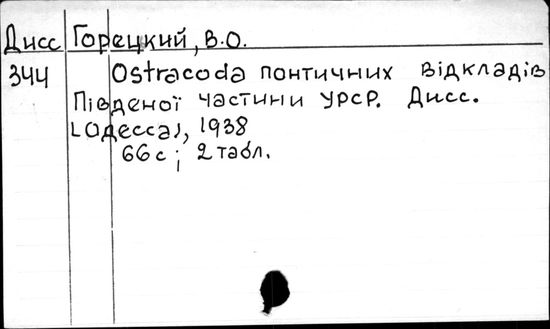 Дисс Горецкий, В.О.
344 Ostracoda понтичних відкладів
Південої частини УРСР. Дисс.
[Одесса], 1938
66с; 2 табл.